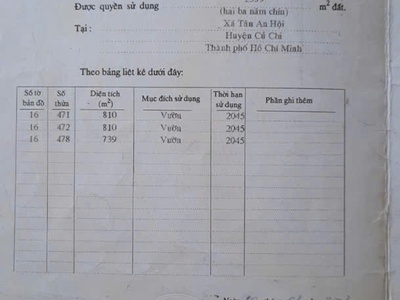 Được quyền sử dụng m² đất.
(hai ba năm chín)
Tại : Xã Tân An Hội
Huyện Củ Chi
Thành phố Hồ Chí Minh
Theo bảng liệt kê dưới đây:
Số tờ bản đồ Số thửa Diện tích (m²) Mục đích sử dụng Thời hạn sử dụng Phần ghi thêm
16 471 810 Vườn 2045
16 472 810 Vườn 2045
16 478 739 Vườn 2045